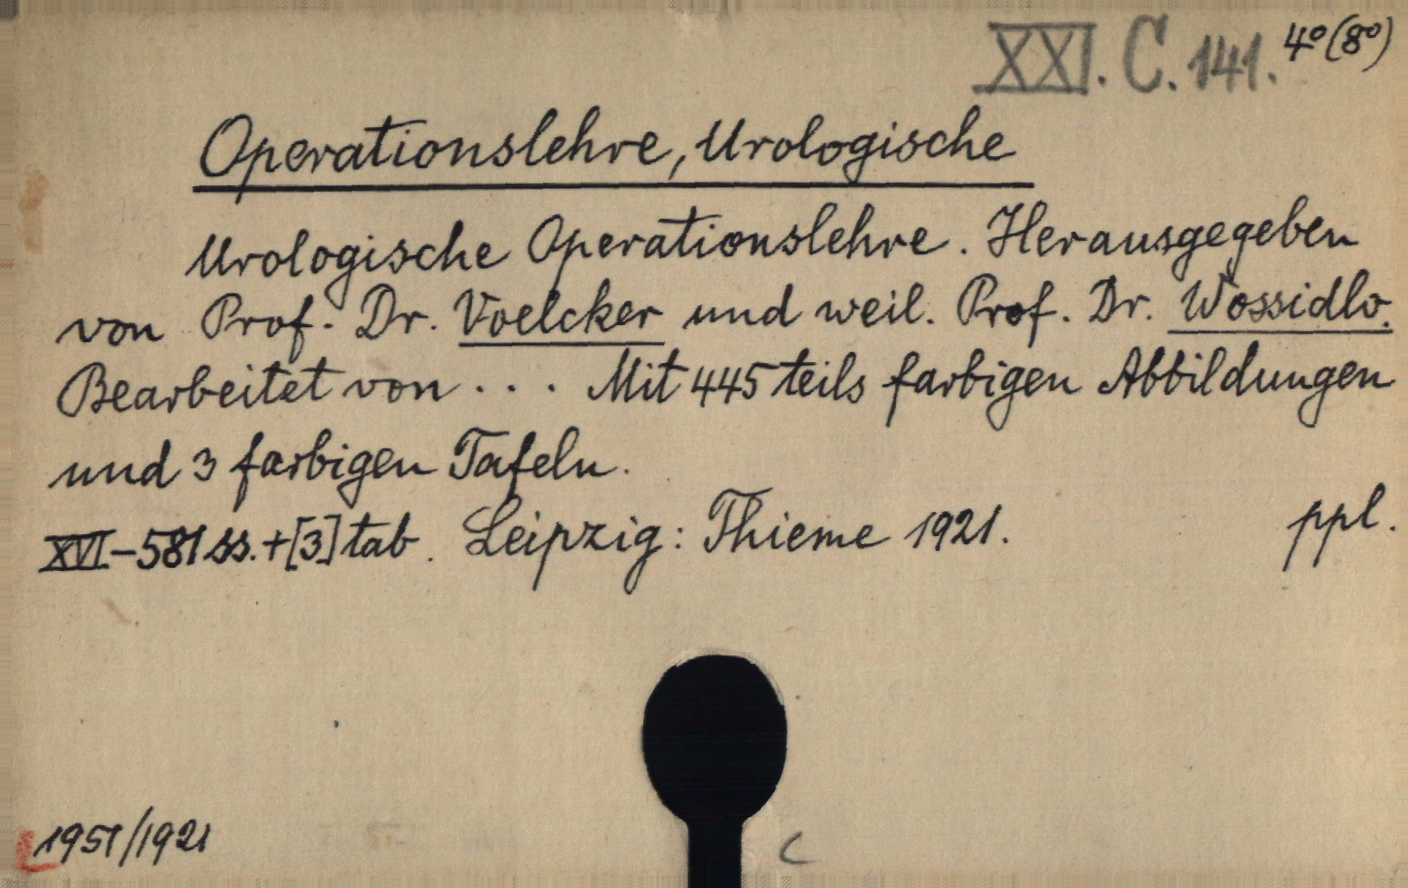 XXI. C. 141. 4°(8°)
Operationslehre, Urologische
Urologische Operationslehre. Herausgegeben
von Prof. Dr. Voelcker und weil. Prof. Dr. Wossidlo.
Bearbeitet von . . . Mit 445 teils farbigen Abbildungen
und 3 farbigen Tafeln.
XVI–581 ss. + [3] tab. Leipzig: Thieme 1921. ppl.
1951/1921
C